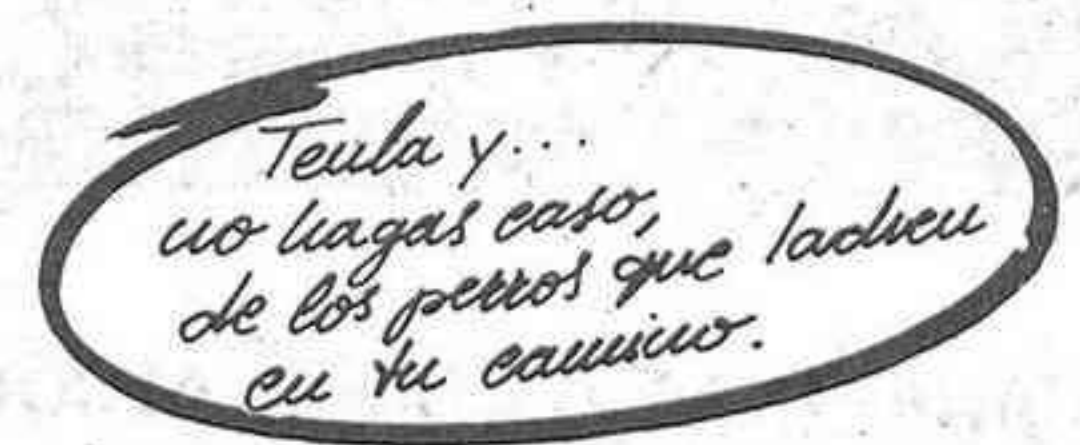 Tenla y...
no hagas caso,
de los perros que ladren
en tu camino.